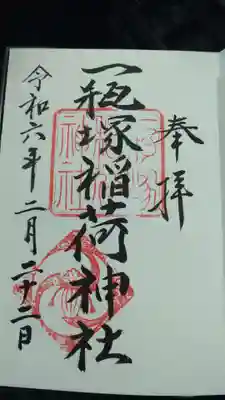 奉拝
一瓶塚稲荷神社
令和六年二月二十二日